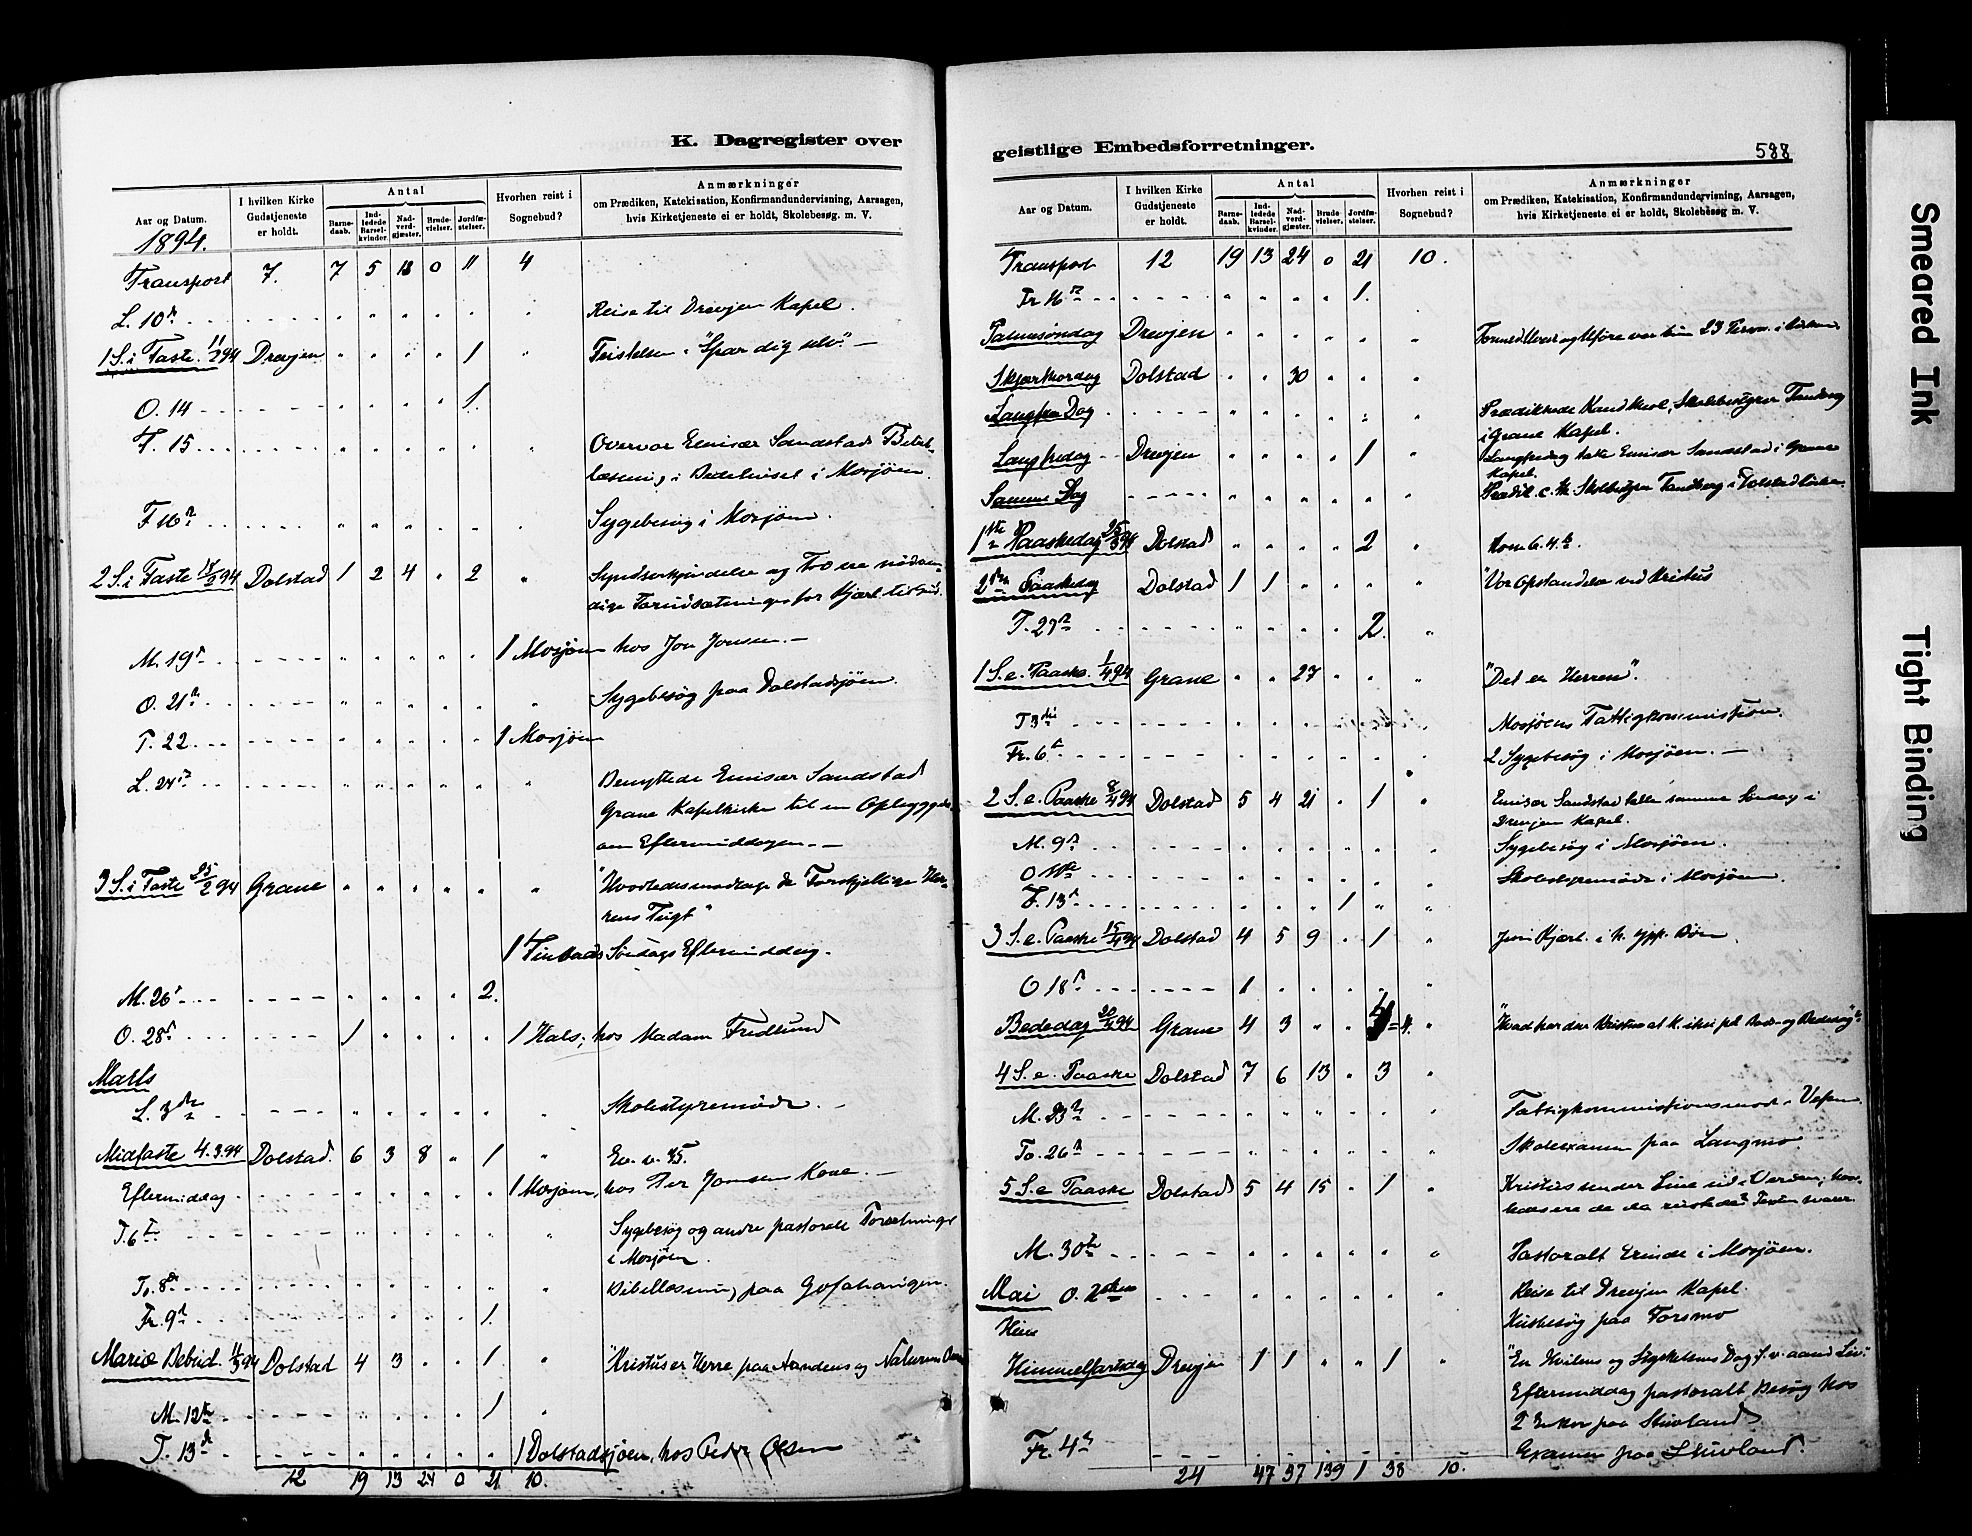 K. Dagregister over
Aar og Datum.
I hvilken Kirke Gudstjeneste er holdt.
Antal
Barne-daab.
Ind-ledede Barsel-kvinder.
Nad-verd-gjæster.
Brude-vielser.
Jordfæ-stelser.
Hvorhen reist i Sognebud?
Anmærkninger
om Prædiken, Katekisation, Konfirmandundervisning, Aarsagen,
hvis Kirketjeneste ei er holdt, Skolebesøg. m. V.
1894.
Transport 7. 7 5 18 0 11 4
L. 10d Reise til Drevjen Kapel.
1 S. i Faste 11/2 94 Drevjen " " " " 1 " Fristelsen "Spar dig selv" —
O. 14 1.
T. 15 Overvar Emisær Sandstads Bibel-
læsning i Bedehuset i Mosjøen.
F 16d Sygebesøg i Mosjøen.
2 S. i Faste 18/2 94 Dolstad 1 2 4 " 2 " Syndserkjendelse og Tro ere nødven-
dige Forudsætninger for Kjærl. til Gud.
M. 19d 1 Mosjøen hos Jon Jonsen. —
O. 21d Sygebesøg paa Dolstadsjøen.
T. 22 1 Mosjøen
L. 24d Benyttede Emisær Sandstad
Grane Kapelkirke til en Opbyggelse
om Eftermiddagen. —
3 S. i Faste 25/2 94 Grane " " " " " " "Hvorledes modtage de Forskjellige Her-
rens Tugt"
1 Søndags Eftermiddag.
M. 26d 2.
O. 28d 1 1 Hals, hos Madam Fredlund
Marts
L. 3die Skolestyremøde. —
Midfaste 4.3.94 Dolstad 6 3 8 " 1 " Ev. v. 15.
Eftermiddag 1 Mosjøen, hos Per Jonsens Kone. —
T. 6te Sygebesøg og andre pastorale Forretninger
i Mosjøen.
To. 8de Bibellæsning paa
Fr. 9d 1.
Mariæ Bebud. 11/3 94 Dolstad 4 3 " " 1 " "Kristus er Herre paa Aandens og Naturens
M. 12te 1
T. 13de 1 Dolstadsjøen, hos Peder Olsen
12 19 13 24 0 21 10.
geistlige Embedsforretninger.
588
Aar og Datum.
I hvilken Kirke Gudstjeneste er holdt.
Antal
Barne-daab.
Ind-ledede Barsel-kvinder.
Nad-verd-gjæster.
Brude-vielser.
Jordfæ-stelser.
Hvorhen reist i Sognebud?
Anmærkninger
om Prædiken, Katekisation, Konfirmandundervisning, Aarsagen,
hvis Kirketjeneste ei er holdt, Skolebesøg m. V.
Transport 12 19 13 24 0 21 10.
Fr 16d 1.
Palmesøndag Drevjen kun 23 Pers. i Kirken
Skjærthorsdag Dolstad " " 30 " " "
Langfre Dag Prædikede Kand theol, Skolebestyrer Tandberg
i Grane Kapel.
Langfredag Drevjen " " " " 1 " Langfredag talte Emisær Sandstad i Grane
Kapel.
Samme Dag Prædik. c. th. Skolbestyrer Tandberg i Dolstad Kirke.
1ste Paaskedag 25/3 94 Dolstad " " " " 2 " Rom 6. 4.
2den Paaskedag Dolstad 1 1 " " " "Vor Opstandelse ved Kristus
T. 27d 2.
1 S. e. Paaske. 1/4 94 Grane " " 27 " " " "Det er Herren".
T 3die Mosjøens Fattigkommission.
Fr. 6te 2 Sygebesøg i Mosjøen. —
2 S. e. Paaske 8/4 94 Dolstad 5 4 21 " 1 " Emisær Sandstad talte samme Søndag i
Drevjen Kapel.
M. 9d Sygebesøg i Mosjøen.
O 11te Skolestyremøde i Mosjøen.
F. 13d 1 "
3 S. e. Paaske 15/4 94 Dolstad 4 5 9 " 1 "
O 18d 1
Bededag 20/4 94 Grane 4 3 " " 4 = 4. "
4 S. e. Paaske Dolstad 7 6 13 " 3 "
M. 23d Fattigkommissionsmøde i Vefsn.
To. 26d Skolexamen paa Langmo
5 S. e Paaske Dolstad 5 4 15 " 1 " Kristus sender Sine ud i Verden;
M. 30te Pastoralt Erinde i Mosjøen.
Mai O. 2den Reise til Drevjen Kapel.
Husbesøg paa Forsmo
Himmelfartsdag Drevjen 1 1 " " 1 " "En Hvilens og Styrkelsens Dag f. v. aand Liv."
Eftermiddag pastoralt Besøg hos
2 Enker paa Stuvland.
Fr. 4d Examen paa Stuvland.
24 47 37 139 1 38 10.
Smeared Ink
Tight Binding